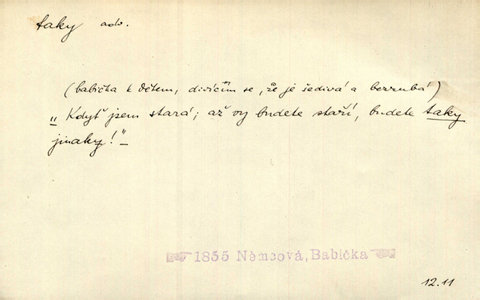 taky adv.
(babička k dětem, divícím se, že je šedivá a bezzubá)
„Když jsem stará; až vy budete staří, budete taky
jinaky!"
1855 Němcová, Babička
12.11